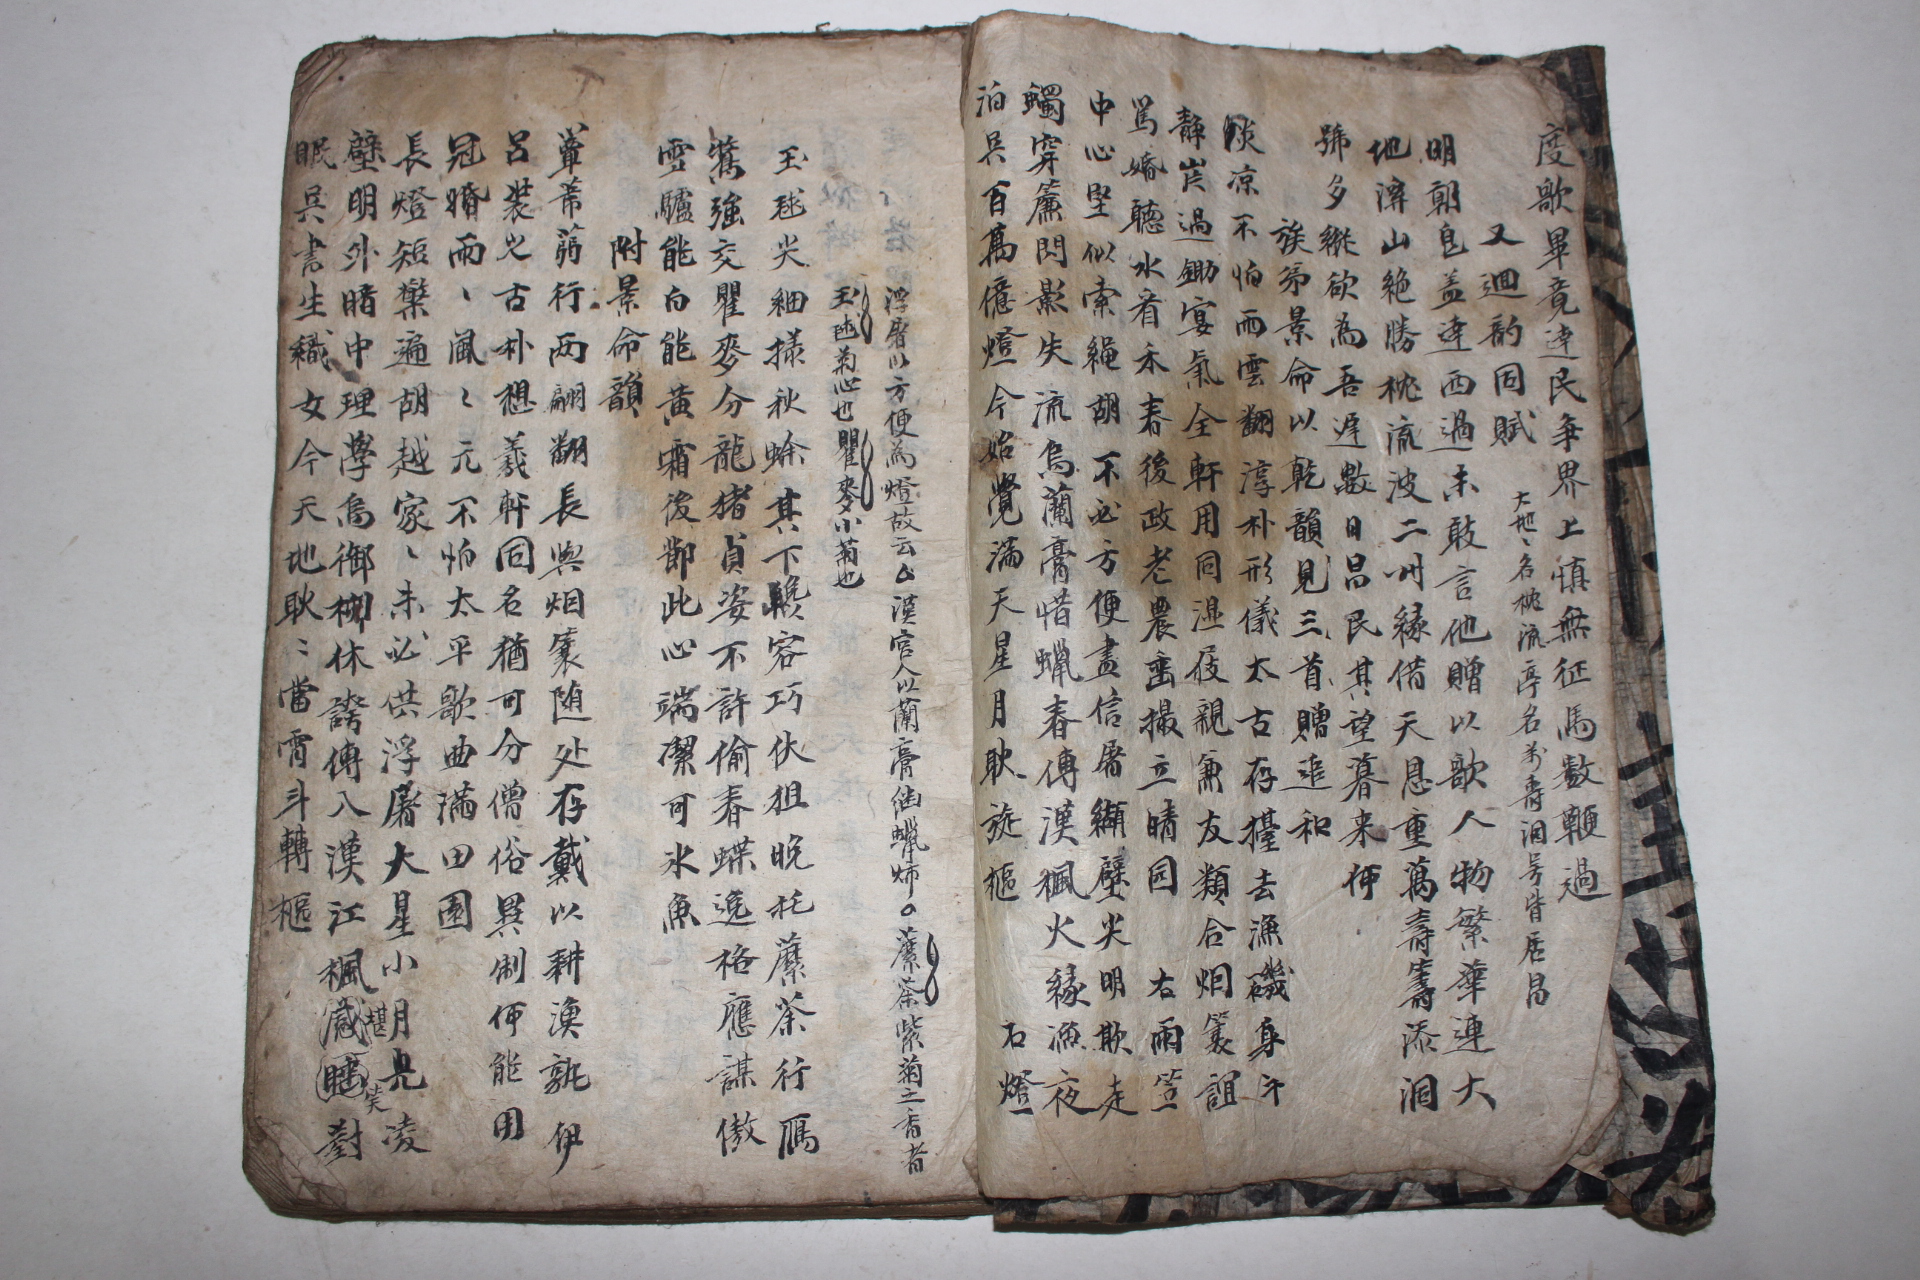 度歌畢竟達民爭界上慎無征馬數鞭過
又廻韵同賦 大地ヽ名枕流亭名万壽洞号皆居昌
明朝皀盖達西過未敢言他贈以歌人物繁華連大
地澤山絶勝枕流波二州縁借天恩重萬壽籌添洞
號多縱欲為吾遅數日昌民其望暮来何
族弟景命以乾韻見三首贈追和
淡凉不怕雨雲翻淳朴形儀太古存擡去漁磯身
静炭過鋤宴氣全軒用同湿屐親兼友類合烟蓑誼
篤婚聽水看禾春後政老農畫撮立晴园 右雨笠
中心堅似索繩胡不必方便盡信屠纈壁尖明欺走
蠋穿簾閃影失流烏蘭膏惜蠟春傳漢楓火縁漁夜
泊吳百萬億燈今始覺滿天星月耿旋樞 右燈
浮屠以方便為燈故云 漢官人以蘭膏 蠟 蘪荼紫菊之香者
玉毬菊心也瞿麥小菊也
玉毬尖細㨾秋蜍其下 容巧伏狙晩秅蘪荼行鴈
鶩強交瞿麥分龍猪貞姿不許偷春蝶逸格應謀傲
雪驢能白能黄霜後節此心端潔可氷魚
附景命韻
蕇芾蒻行两翩翻長與烟蓑随处存戴以耕漁孰伊
呂裝之古朴想羲軒同名猶可分僧俗異制何能用
冠婚雨ヽ風ミ元不怕太平歌曲滿田園
長燈短檠遍胡越家ヽ未必供浮屠大星小月見凌
壁明外暗中理學烏御柳休誇傳入漢江楓 對
眠吳書生織女今天地耿ミ當霄斗轉樞